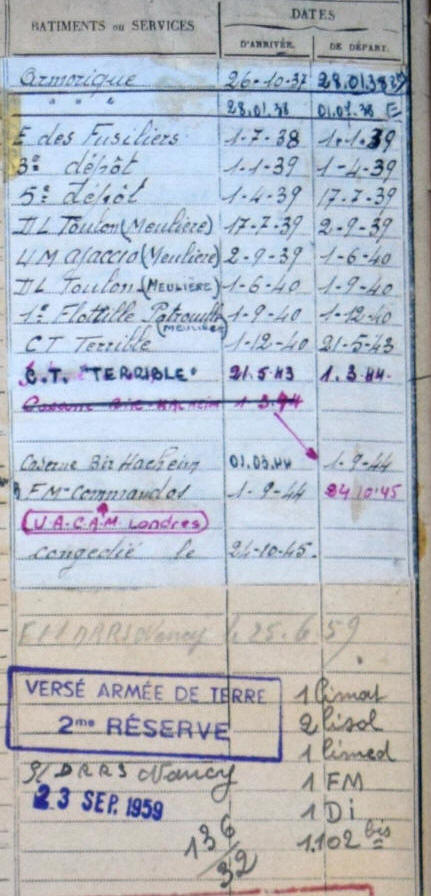 BATIMENTS ou SERVICES
DATES
D'ARRIVÉE.
DE DÉPART.
Armorique 26-10-37 28.01.38
" " " 28.01.38 01.07.38 E
E des Fusiliers 1-7-38 1-1-39
3e dépôt 1-1-39 1-4-39
5e dépôt 1-4-39 17-7-39
DL Toulon (Meulière) 17-7-39 2-9-39
UM Ajaccio (Meulière) 2-9-39 1-6-40
DL Toulon (MEULIÈRE) 1-6-40 1-9-40
1e Flottille Patrouille 1-9-40 1-12-40
(MEULIÈRE)
CT Terrible 1-12-40 21-5-43
C.T. "TERRIBLE" 21.5.43 1.3.44.
Caserne BIR-HACHEIM 1 3.44
Caserne Bir Hacheim 01.03.44 1-9-44
FM-Commandos 1-9-44 24.10.45
(U.A.C.A.M. Londres)
Congédié le 24-10-45.
Nancy le 25.6.59
VERSÉ ARMÉE DE TERRE
2me RÉSERVE
1 limat
2 lisol
1 limed
S/DRRS Nancy
1 FM
23 SEP. 1959
1 Di
136/32
1.102 bis